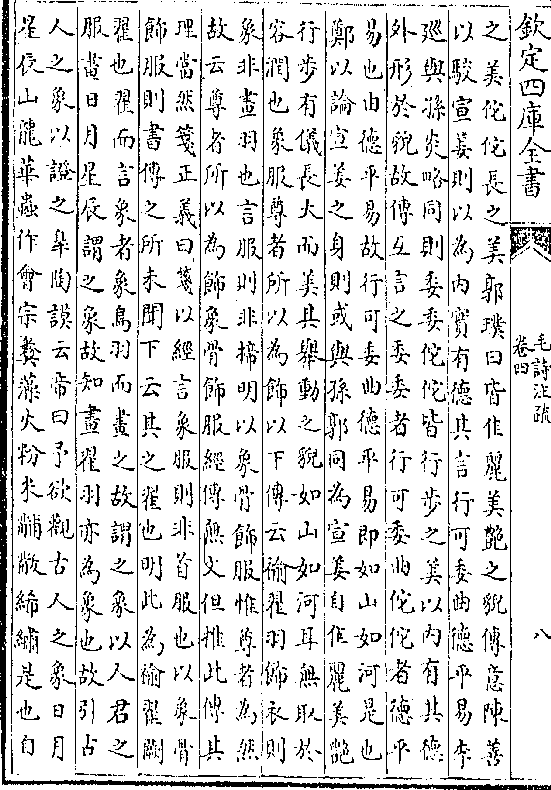 欽定四庫全書
毛詩注疏
卷四
八
之美佗佗長之美郭璞曰皆佳麗美艶之貌傳意陳善
以駮宣姜則以為内實有德其言行可委曲德平易李
廵與孫炎略同則委委佗佗皆行步之美以内有其德
外形於貌故傳互言之委委者行可委曲佗佗者德平
易也由德平易故行可委曲德平易即如山如河是也
鄭以論宣姜之身則或與孫郭同為宣姜自佳麗美艶
行步有儀長大而美其舉動之貌如山如河耳無取於
容潤也象服尊者所以為飾以下傳云褕翟羽飾衣則
象非畫羽也言服則非揥明以象骨飾服惟尊者為然
故云尊者所以為飾象骨飾服經傳無文但推此傳其
理當然箋正義曰箋以經言象服則非首服也以象骨
飾服則書傳之所未聞下云其之翟也明此為褕翟闕
翟也翟而言象者象鳥羽而畫之故謂之象以人君之
服畫日月星辰謂之象故知畫翟羽亦為象也故引古
人之象以證之臯陶謨云帝曰予欲觀古人之象日月
星辰山龍華蟲作會宗彛藻火粉米黼黻絺繡是也自